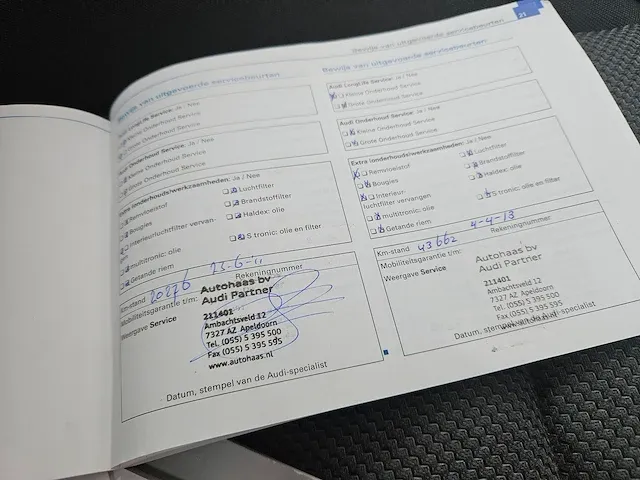 21
Bewijs van uitgevoerde servicebeurten
Bewijs van uitgevoerde servicebeurten
Audi LongLife Service: Ja / Nee
Kleine Onderhoud Service
Grote Onderhoud Service
Audi Onderhoud Service: Ja / Nee
Kleine Onderhoud Service
Grote Onderhoud Service
Extra (onderhouds)werkzaamheden: Ja / Nee
Remvloeistof
Luchtfilter
Bougies
Brandstoffilter
Interieurluchtfilter vervan-
Haldex: olie
multitronic: olie
S tronic: olie en filter
Getande riem
Km-stand 20276
Rekeningnummer
Mobiliteitsgarantie t/m:
Weergave Service
Autohaas bv
Audi Partner
211401
Ambachtsveld 12
7327 AZ Apeldoorn
Tel. (055) 5 395 500
Fax (055) 5 395 595
www.autohaas.nl
Datum, stempel van de Audi-specialist
Bewijs van uitgevoerde servicebeurten
Audi LongLife Service: Ja / Nee
Kleine Onderhoud Service
Grote Onderhoud Service
Audi Onderhoud Service: Ja / Nee
Kleine Onderhoud Service
Grote Onderhoud Service
Extra (onderhouds)werkzaamheden: Ja / Nee
Remvloeistof
Luchtfilter
Bougies
Brandstoffilter
Interieur-
luchtfilter vervangen
Haldex: olie
multitronic: olie
S tronic: olie en filter
Getande riem
Km-stand 43662 4-4-13
Rekeningnummer
Mobiliteitsgarantie t/m:
Weergave Service
Autohaas bv
Audi Partner
211401
Ambachtsveld 12
7327 AZ Apeldoorn
Tel. (055) 5 395 500
Fax (055) 5 395 595
www.autohaas.nl
Datum, stempel van de Audi-specialist